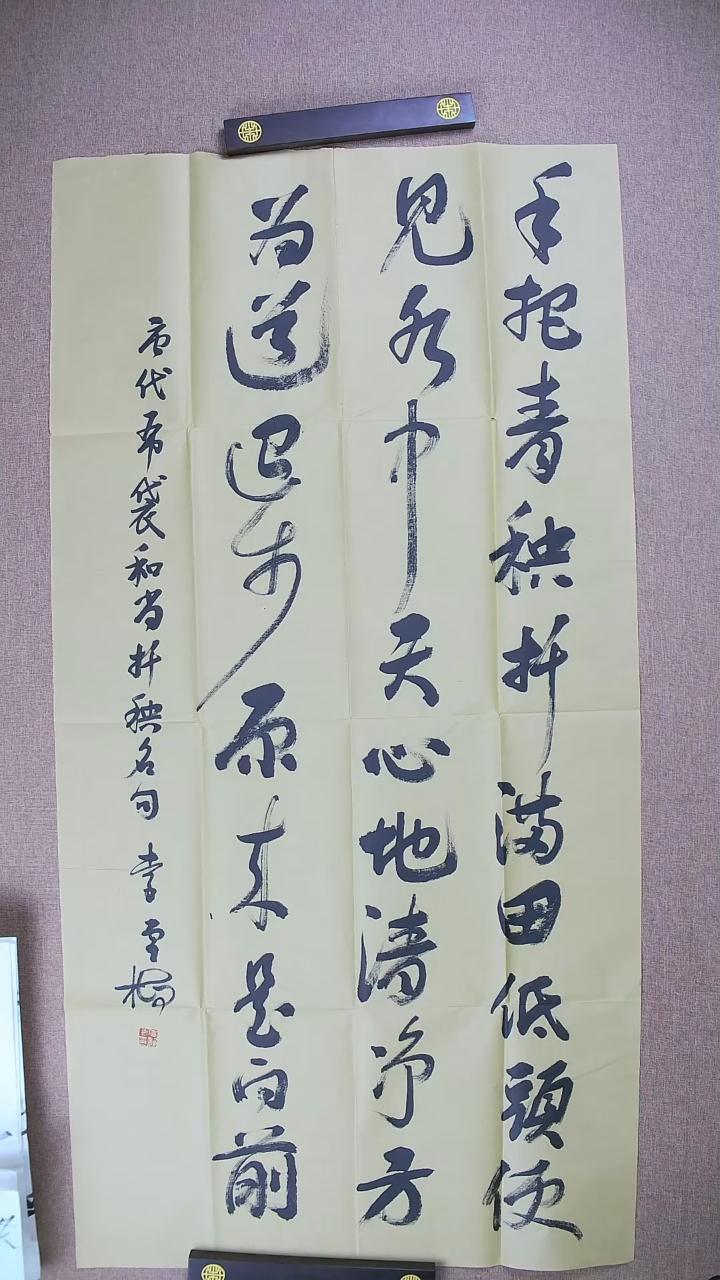 手把青秧扦满田低頭便
見水中天心地清净方
为道退步原来是向前
唐代布袋和尚扦秧名句 李雲